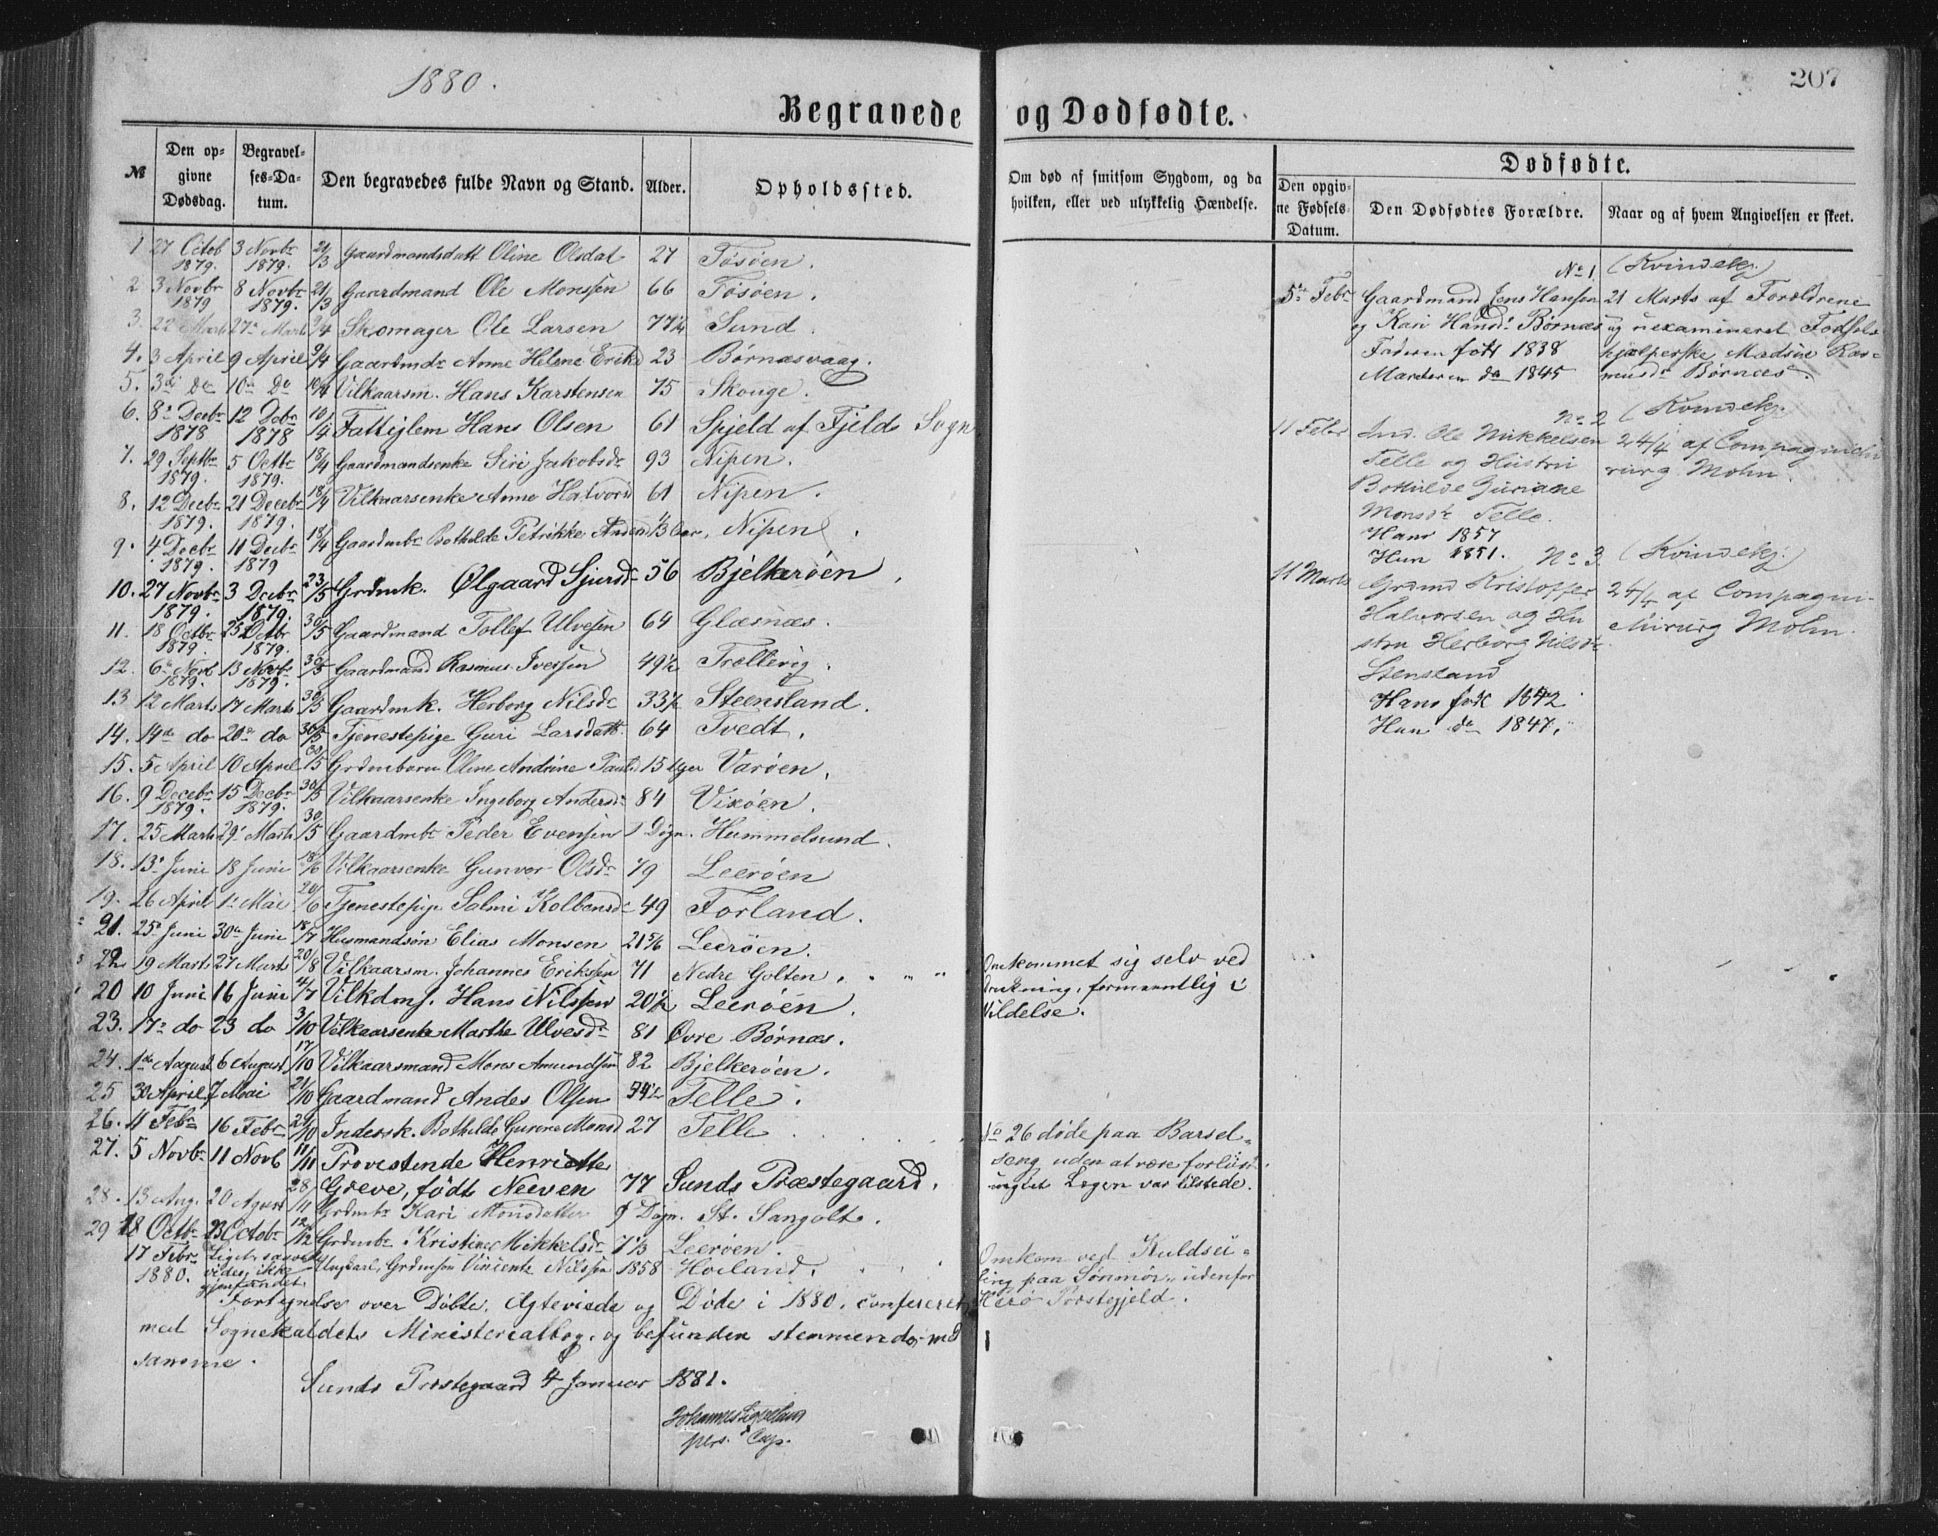 1880.
207
Begravede og Dødfødte.
№ Den opgivne Dødsdag. Begravelses-Datum. Den begravedes fulde Navn og Stand. Alder. Opholdssted.
Om død af smitsom Sygdom, og da hvilken, eller ved ulykkelig Hændelse.
Dødfødte.
Den opgivne Fødsels Datum. Den Dødfødtes Forældre. Naar og af hvem Angivelsen er skeet.
1 27 Octob 1879. 3 Novbr 1879. 21/3 Gaardmandsdatt Oline Olsdat 27 Tøsøen.
2 3 Novbr 1879 8 Novbr 1879. 21/3 Gaardmand Ole Monssen 66 Tøsøen.
3. 22 Marts 27de Marts 9/4 Skomager Ole Larsen 77 1/2 Sund.
4. 3 April 9 April 9/4 Gaardmdr Anne Helene Eriksd 23 Børnæsvaag.
5. 3de Do 10de Do 10/4 Vilkaarsm. Hans Karstensen 75 Skouge.
6. 8de Decbr 1878 12 Debr 1878 10/4 Fattiglem Hans Olsen 61 Spjeld af Fjelds Sogn
7. 29 Septbr 1879. 5 Octbr 1879. 18/4 Gaardmandsenke Siri Jakobsdr 93 Nipen.
8. 12 Decbr 1879. 21 Decebr 1879. 18/4 Vilkaarsenke Anne Halvorsd 61 Nipen.
9. 4 Decbr 1879. 11 Decbr 1879 18/4 Gaardmbr Bothilde Petrikke Andersd 1/3 Aar. Nipen.
10. 27 Novbr 1879. 3 Decbr 1879. 23/5 Grdmk. Ølgaard Sjursdr 56 Bjelkerøen.
11. 18 Octbr 1879. 25 Octbr 1879. 30/5 Gaardmand Tollef Ulvesen 64 Glæsnæs.
12. 6te Novb 1879. 13 Novbr 1879. 30/5 Gaardmand Rasmus Iversen 49 1/2 Trellevig.
13. 12 Marts 17 Marts 30/5 Gaardmk. Herborg Nilsdr 33 1/2 Steensland.
14. 14de do 20de do 30/5 Tjenestepige Guri Larsdatt. 64 Tvedt.
15. 5 April 10 April 30/5 Grdmbarn Oline Andrine Paulsd 15 Uger Varøen.
16. 9 Decebr 1879. 15 Decbr 1879. 30/5 Vilkaarsenke Ingeborg Andersdr 84 Vixøen.
17. 25 Marts 29de Marts 30/5 Gaardmbr Peder Evensen 1 Døgn. Hummelsund.
18. 13de Juni 18 Juni 18/6 Vilkaarsenke Gunvor Olsdr 79 Leerøen
19. 26 April 1de Mai 20/6 Tjenestepige Salmi Kolbensdr 49 Forland.
21. 25de Juni 30de Juni 18/7 Husmandsøn Elias Monsen 21 5/6 Leerøen.
22. 19 Marts 27 Marts 20/8 Vilkaarsm. Johannes Eriksen 71 Nedre Golten. " " " Omkommet sig selv ved
20 10 Juni 16 Juni 4/7 Vilkdmf. Hans Nilssen 20 1/2 Leerøen. Drukning, formeentlig i
23. 17de do 23 do 3/10 Vilkaarsenke Marthe Ulvesdr 81 Øvre Børnæs. Vildelse.
24. 1de August 6 August 17/10 Vilkaarsmand Mons Amundsen 82 Bjelkerøen.
25 30 April 7 Mai 21/10 Gaardmand Andes Olsen 74 1/2 Telle.
26. 11 Febr 16 Febr 29/10 Indersk. Bothilde Gurine Monsd 27 Telle . . . . No 26 døde paa Barsel-
27. 5 Novbr 11 Novb 11/11 Provestinde Henriette seng uden at være forløst
Greve, født Neeven 77 Sunds Præstegaard. Lægen var tilstede.
28. 13 Aug. 20 August 28/11 Grdmbr Kari Monsdatter 9 Døgn. St. Sangolt.
29 18 Octbr 23 Octobr 12/12 Grdmbr Kristine Mikkelsdr 7 1/3 Leerøen.
17 Febr 1880. Liget, saavidt vides, ikke gjenfundet. Ungkarl, Grdmsøn Vincente Nilssen 1858 Hoiland. Omkom ved Kuldseiling paa Sønmør, udenfor Herø Præstegjeld.
Fortegnelse over Døbte, Ægteviede og Døde i 1880, confereret
med Sognekaldets Ministerialbog, og befunden stemmende med
samme.
Sunds Præstegaard 4 Januar 1881.
pers. Cap.
No 1 (Kvindekj.)
5te Febr Gaardmand Jens Hansen 21 Marts af Forældrene
og Kari Hansdr Børnæs og uexamineret Fødsels
Faderen født 1838 hjælperske Madsine Ras-
Moderen do 1845 musdr Børnæs.
No 2 (Kvindekj.
11 Febr Ind. Ole Mikkelsen 24/4 af Compagnichi
Telle og Hustru rurg Mohn.
Bothilde Guriane
Monsdr Telle.
Han 1857
Hun 1851. No 3 (Kvindekj.)
11 Marts Grdmd Kristoffer 24/4 af Compagni-
Halvorsen og Hu chirurg Mohn.
stru Herborg Nilsdr
Stensland
Han født 1842
Hun do 1847.